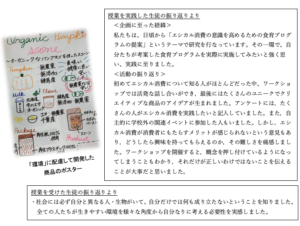 Organic Pumpkin
scone
「環境」に配慮して開発した
商品のポスター
授業を実践した生徒の振り返りより
＜企画に至った経緯＞
私たちは、日頃から「エシカル消費の意識を高めるための食育プログ
ラムの提案」というテーマで研究を行なっています。その一環で、自
分たちが考案した食育プログラムを実際に実施してみたいと強く思
い、実践に至りました。
＜活動の振り返り＞
初めてエシカル消費について知る人がほとんどだった中、ワークショ
ップでは活発な話し合いができ、最後にはたくさんのユニークでクリ
エイティブな商品のアイデアが生まれました。アンケートには、たく
さんの人がエシカル消費を実践したいと記入していました。また、自
主的に学校外の関連イベントに参加した人もいました。しかし、エシカ
ル消費が消費者にもたらすメリットが感じられないという意見もあ
り、どうしたら興味を持ってもらえるのか、その難しさを痛感しまし
た。ワークショップを開催すると、概念を押し付けているようになっ
てしまうこともわかり、それだけが正しいわけではないことを伝える
ことが大事だと思いました。
授業を受けた生徒の振り返りより
・社会には必ず自分と異なる人・生物がいて、自分だけでは何も成り立たないということを知りました。
全ての人たちが生きやすい環境を様々な角度から自分なりに考える必要性を実感しました。